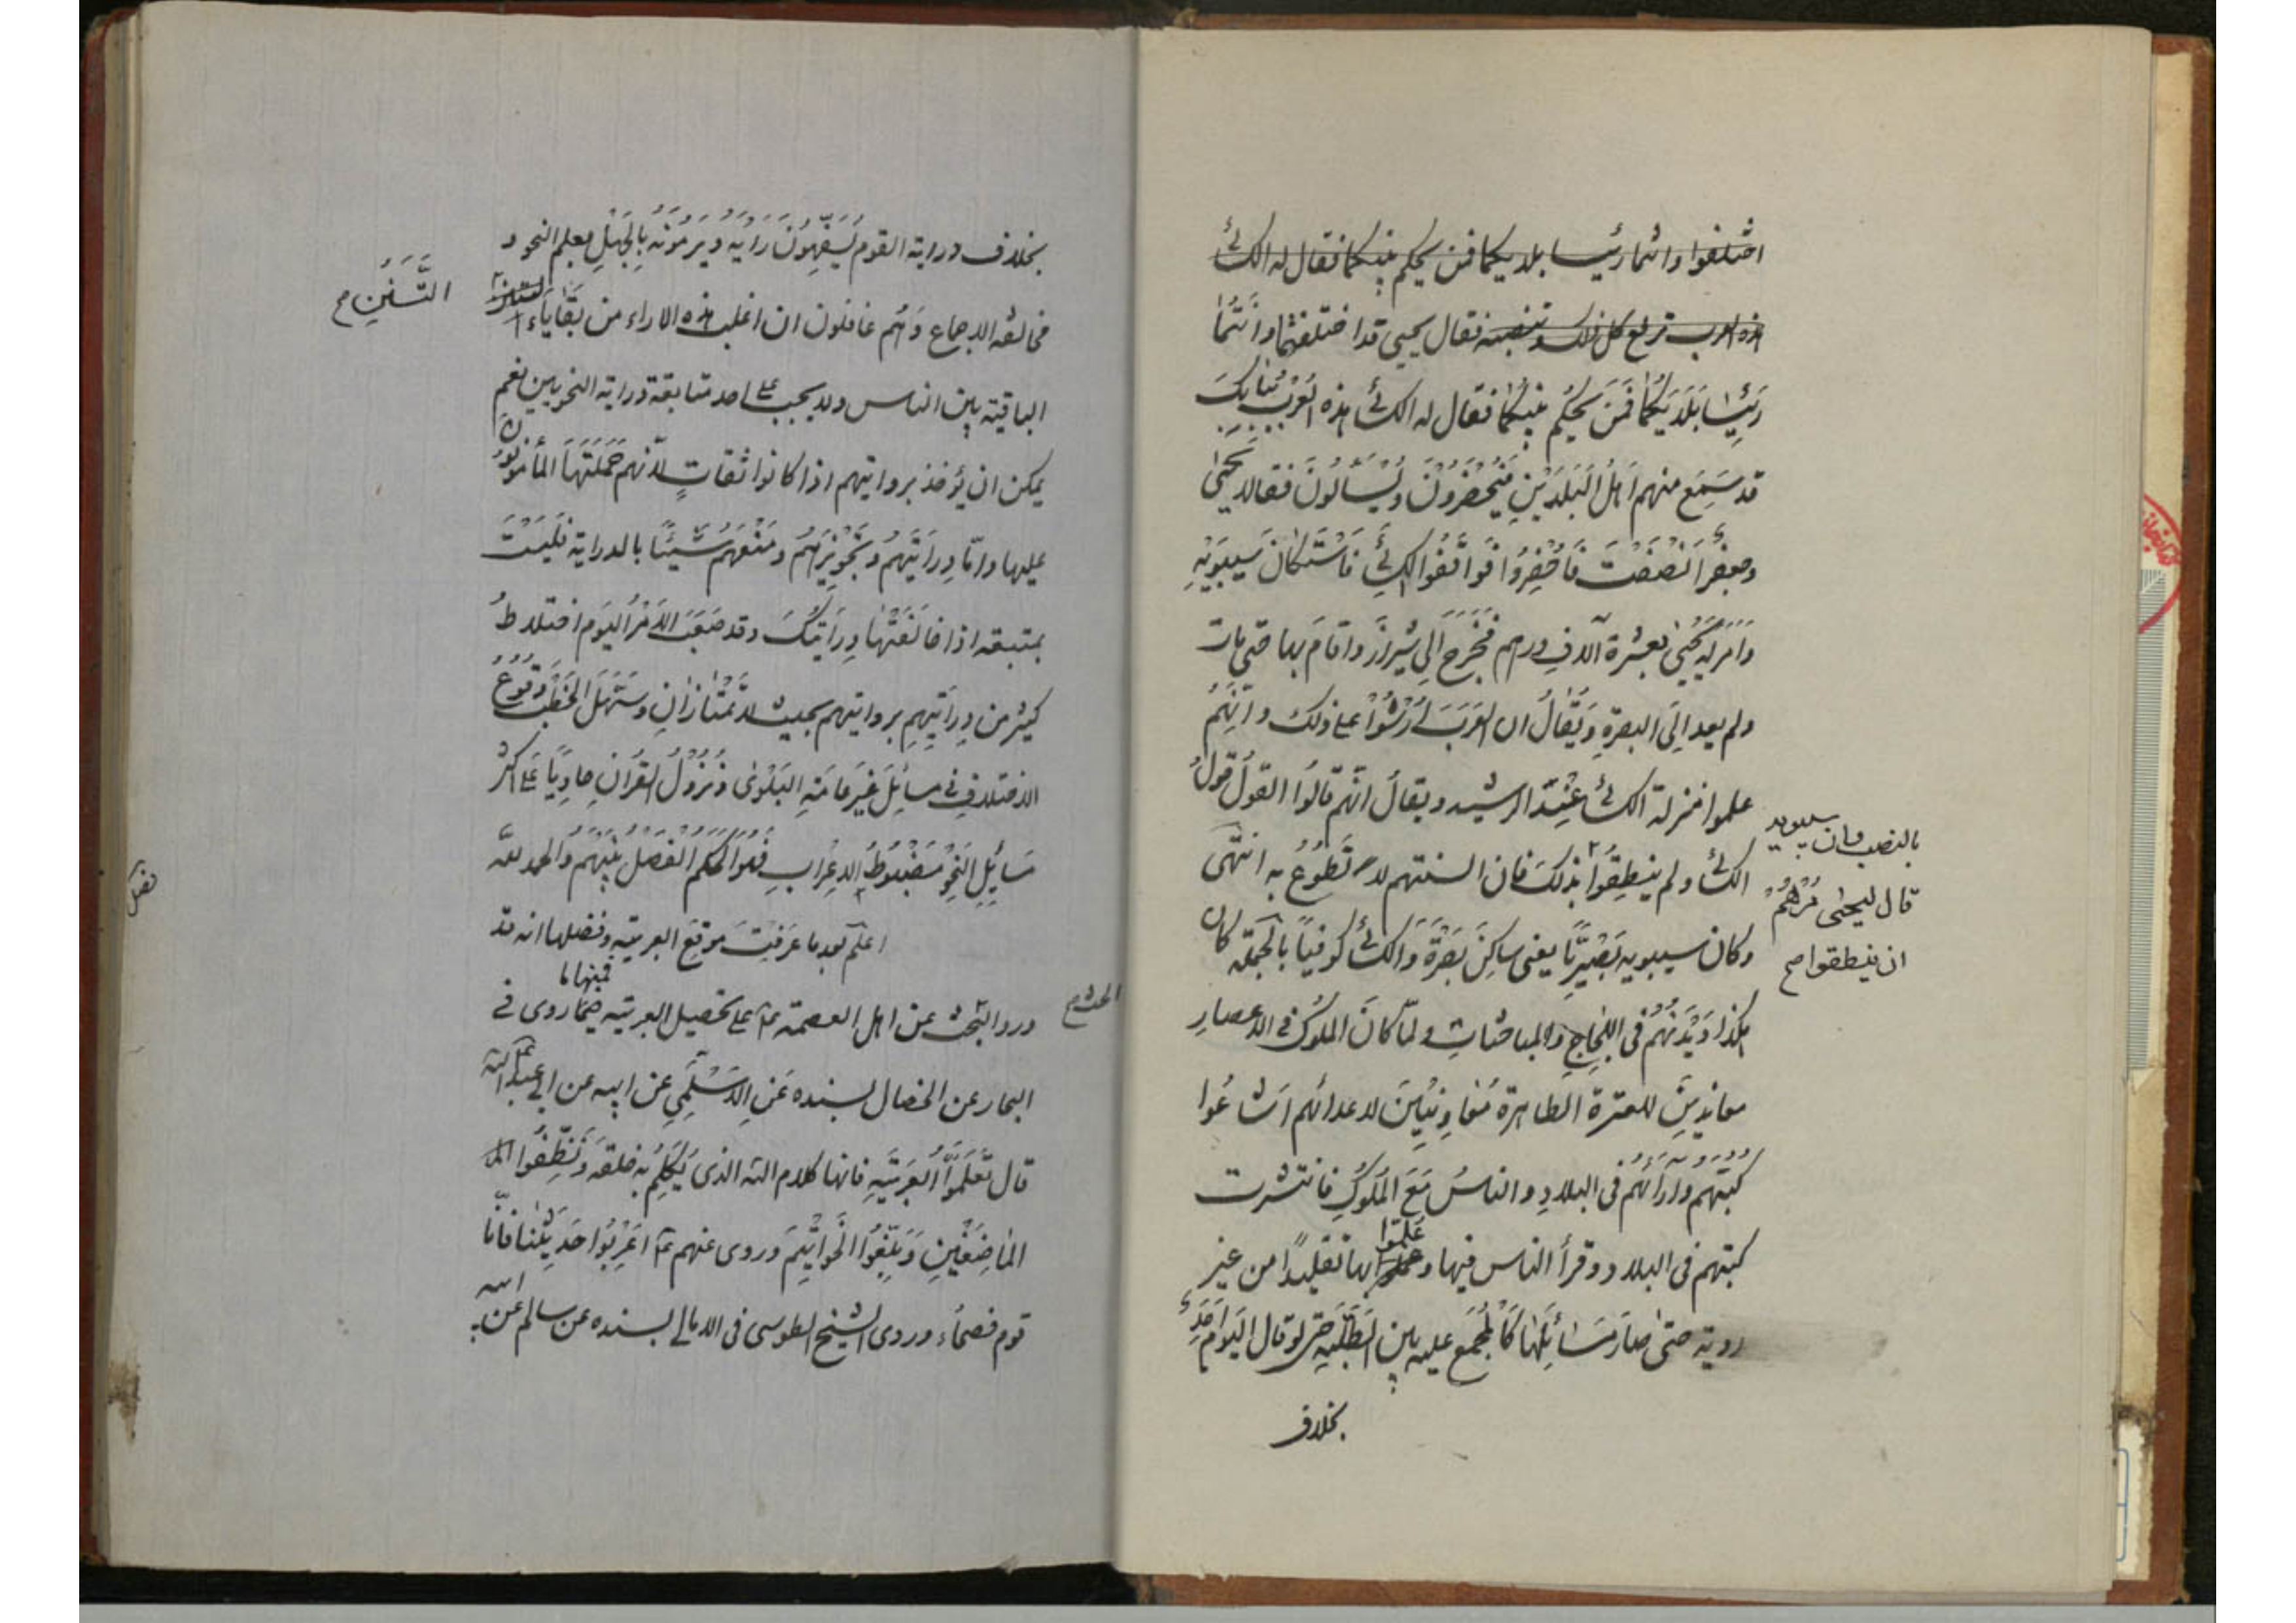 اختلفوا وانتما رئيسا بلديكما فمن يحكم بينكما فقال له الكسائي
هذه العرب ترفع كل ذلك وتنصبه فقال يحيى قد اختلفتما وَاَنْتُمٰا
رَئيسٰا بَلَدَيْكُمٰا فَمَنْ يَحْكُم بينكمٰا فقال له الكسائي هذه العَرَبُ بِبٰابِكَ
قد سَمِعَ منهم اَهْلُ الْبَلَدَيْنِ فَيُحْضَرُونَ وَيُسْأَلُونَ فقال يَحْيىٰ
وجعفرُ اَنْصَفْتَ فَاُحْضِرُوا فَوٰافَقُوا الكسائي فَاسْتَكٰانَ سيبَوَيْهِ
وَاَمَرَ لَهُ يَحْيىٰ بعشرة آلاف درهم فَخَرَجَ اِلى شيرازَ واقامَ بها حتى مات
ولم يعد اِلَى البصرةِ وَيُقٰالُ ان العَرَبَ اُرْشُوْا على ذلك وَ اِنَّهُم
علموا منزلة الكسائي عِنْدَ الرشيد ويقال انّهم قالوا القولُ قولُ
الكسائي ولم ينطِقُوا بذلِكَ فان السنتهم لا تَطُوعُ به انتهى
بالنصب وان سيبويه
قال ليحيى مُرْهُمْ
ان ينطقوا صح
وكان سيبويه بَصْرِيًّا يعنى ساكِنَ بَصْرَةَ وَالكسائي كوفيًا بالجملة كان
هكذا دَيْدَنُهُم فى اللِّجاجِ والمباحثاتِ ولمّا كانَ الملوكُ فى الاعصارِ
معاندينَ للعترة الطاهرة مُعٰاوِنينَ لاعدائهم اَشاعُوا
كُتُبَهُم وآرٰاءَهُم فى البلادِ والناسُ مَعَ المُلُوكِ فانتشرت
كتبهم فى البلاد وقرأ الناس فيها وعَمِلُوا بها تقليدًا من غير
رويّة حتىٰ صارَ مَسٰائِلُهٰا كَالْمُجْمَع عليه بين الطَّلَبَةِ حتّى لو قال اليَوْمَ اَحَدٌ
بخلاف
بخلاف دراية القوم يُسَفِّهُونَ رَأيَهُ ويَرمُونَهُ بِالْجَهْلِ بعلم النحو و
مخالفة الاجماع وَهُم غافلون ان اغلب هذه الاراء من بَقٰايٰاءِ
التَّسَنُّنِ صح
الباقية بين الناس ولا يجب على احد متابعة دراية النحويين نعم
يمكن ان يُؤخذ بروايتهم اذا كانوا ثقاتٍ لانّهم حَمَلَتُهَا المأمونونُ
عليها وامّا دِرٰايَتُهُمْ وَتَجْوِيْزُهُمْ ومَنْعُهُمْ شَيْئًا بالدراية فلَيْسَتْ
بمتبعة اذا خٰالَفَتْهٰا دِرٰايَتُكَ وقد صَعَّبَ الاَمْرَ اليَوْمَ اختلاطُ
كثير من دِرٰايَتِهِم بروايتهم بحيث لا تَمْتٰازٰانِ وسَهَّلَ الْخَطْبَ وُقُوعُ
الاختلافِ فى مسائِلَ غيرِ عٰامَّةِ البَلْوىٰ وَنُزُولُ القُرٰانِ حاوِيًا على اكثر
مَسٰائِلِ النحْوِ مَضْبُوطَ الاِعْرٰابِ فَهُوَ الحَكَمُ الفَصْلُ بَيْنَهُم والحمد للّه
اعلم بعد ما عَرَفْتَ موقِعَ العربيّة وفضلها انه قد
فصل
ورد الحث عن اهل العصمة ع على تحصيل العربيّة فمنها ما روى فى
الحث صح
البحار عن الخصال بسنده عَنِ الاَسْلَمِى عن ابيه عن ابى عبد اللّه ع
قال تَعَلَّمُوا الْعَرَبِيَّةَ فانها كلام اللّه الذى يُكَلِّمُ به خلقه وَنَظِّفُوا
المٰاضِغَيْنِ وَبَلِّغُوا الْخَوٰاتيمَ وروى عنهم ع اَعْرِبُوا حَديثَنٰا فَاِنّٰا
قوم فصحاء وروى الشيخ الطوسى فى الامالى بسنده عن سالم عن ابيه